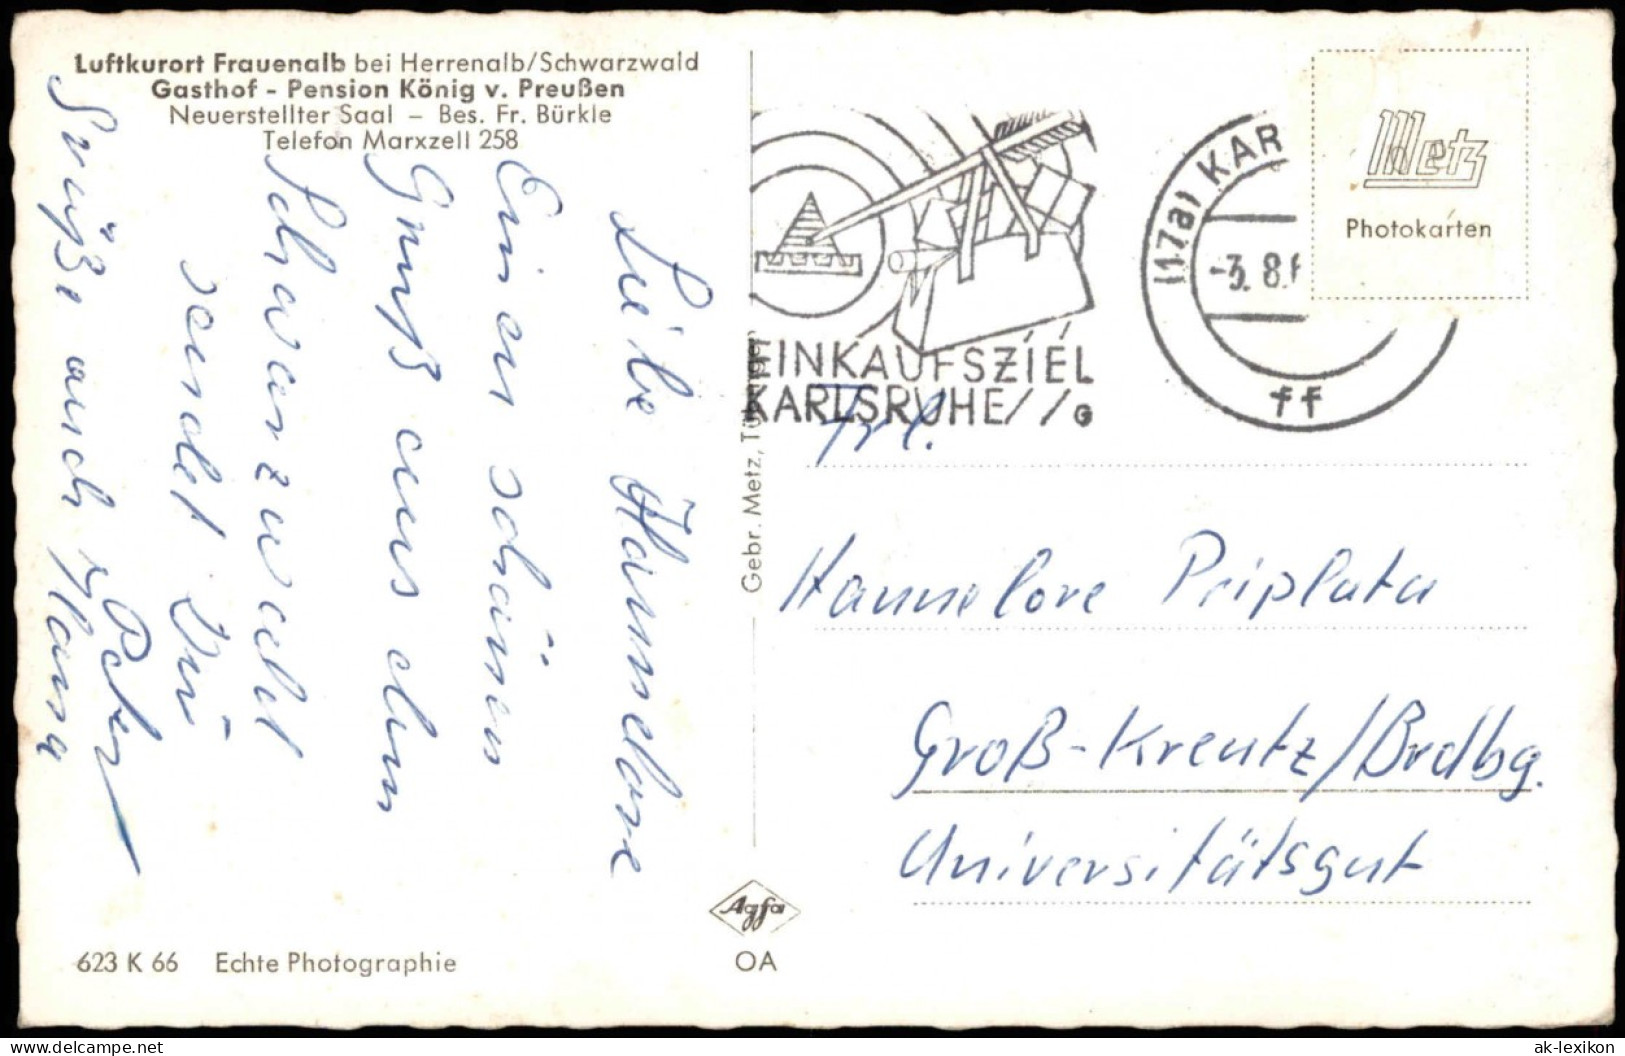 Luftkurort Frauenalb bei Herrenalb/Schwarzwald
Gasthof - Pension König v. Preußen
Neuerstellter Saal – Bes. Fr. Bürkle
Telefon Marxzell 258
Liebe Hannelore
Einen schönen
Gruß aus dem
Schwarzwald
sendet Dir
Peter
Grüße auch Klaus
623 K 66 Echte Photographie
Gebr. Metz, Tübingen
Agfa
OA
EINKAUFSZIEL
KARLSRUHE // G
(17a) KAR
-3. 8. 6
ff
Metz
Photokarten
Frl.
Hannelore Priplata
Groß-Kreutz/Brdbg.
Universitätsgut
delcampe.net
ak-lexikon